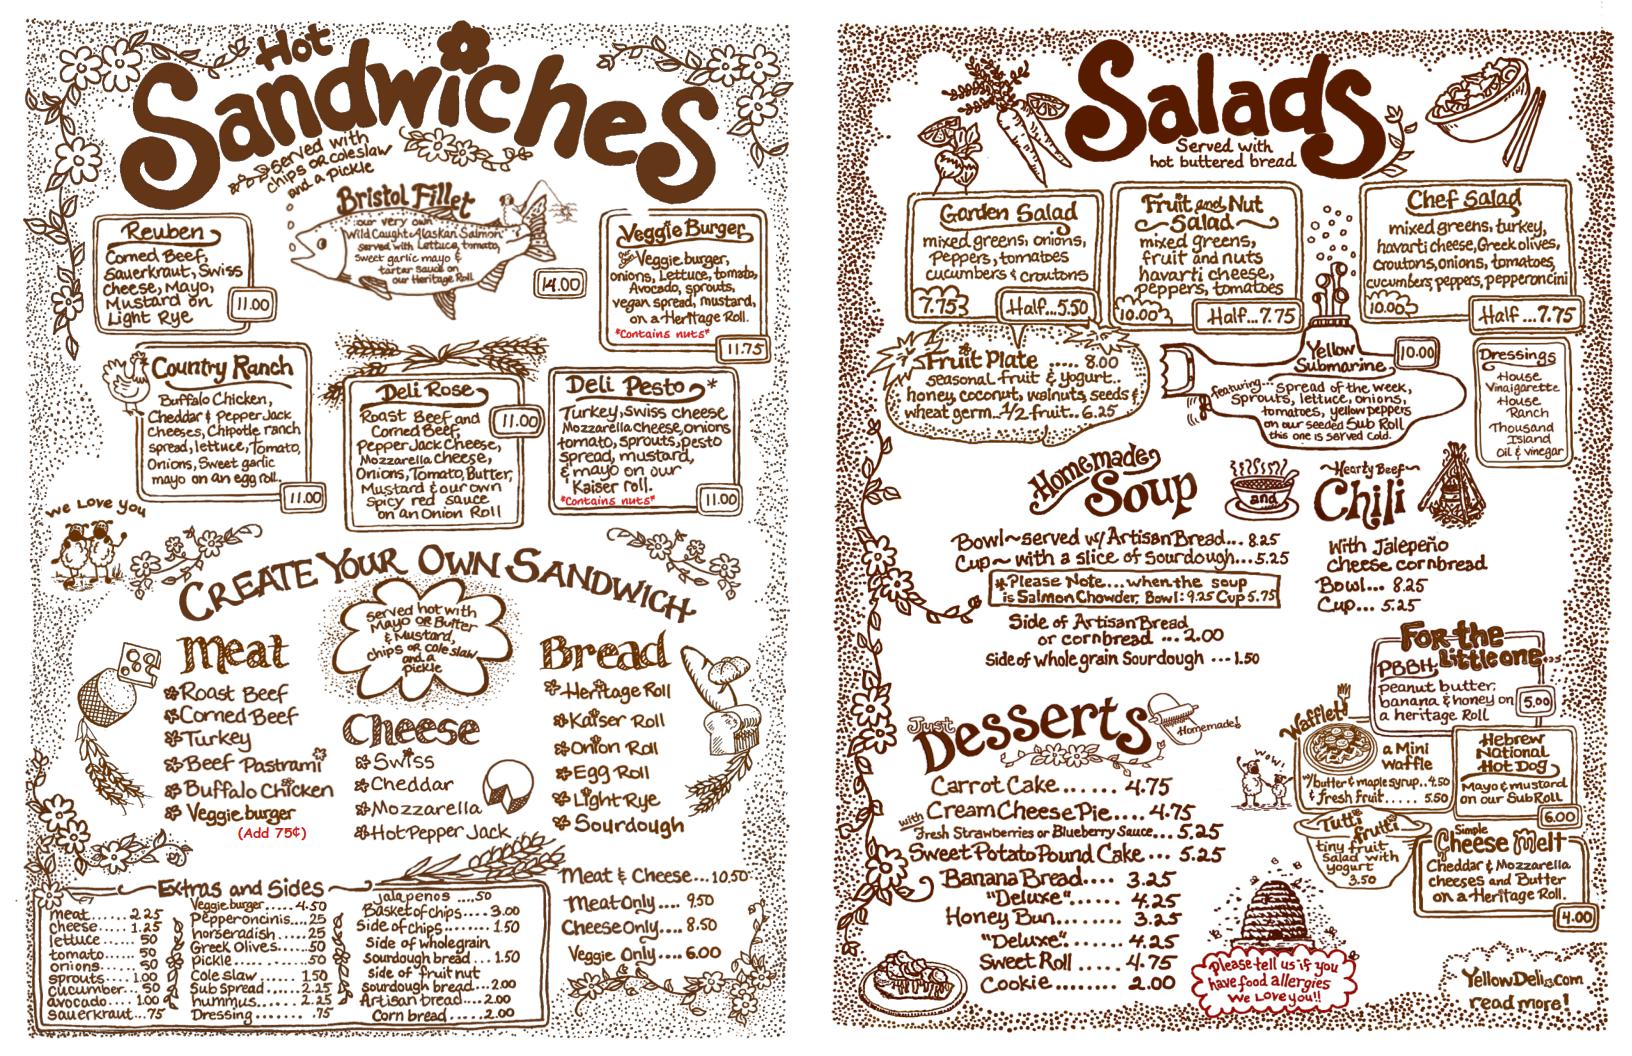 Hot
Sandwiches
served with
chips or coleslaw
and a pickle
Reuben
Corned Beef,
Sauerkraut, Swiss
Cheese, Mayo,
Mustard on
Light Rye
11.00
Bristol Fillet
our very own
Wild Caught Alaskan Salmon
served with Lettuce, tomato,
Sweet garlic mayo &
tartar sauce on
our Heritage Roll
14.00
Veggie Burger
Veggie burger,
onions, Lettuce, tomato,
Avocado, sprouts,
vegan spread, mustard,
on a Heritage Roll.
*Contains nuts*
11.75
Country Ranch
Buffalo Chicken,
Cheddar & Pepper Jack
Cheeses, Chipotle ranch
spread, lettuce, Tomato,
Onions, Sweet garlic
mayo on an egg roll.
11.00
Deli Rose
Roast Beef and
Corned Beef,
Pepper Jack Cheese,
Mozzarella cheese,
Onions, Tomato, Butter,
Mustard & our own
Spicy red sauce
on an Onion Roll
11.00
Deli Pesto *
Turkey, swiss cheese
Mozzarella cheese, onions
tomato, sprouts, pesto
spread, mustard,
& mayo on our
Kaiser roll.
*Contains nuts*
11.00
We Love you
Create Your Own Sandwich
served hot with
Mayo or Butter
& Mustard,
chips or cole slaw
and a
pickle
Meat
Roast Beef
Corned Beef
Turkey
Beef Pastrami
Buffalo Chicken
Veggie burger
(Add 75¢)
Cheese
Swiss
Cheddar
Mozzarella
Hot Pepper Jack
Bread
Heritage Roll
Kaiser Roll
Onion Roll
Egg Roll
Light Rye
Sourdough
Extras and Sides
meat......2.25
cheese......1.25
lettuce......50
tomato......50
onions......50
sprouts....1.00
cucumber...50
avocado....1.00
sauerkraut...75
Veggie burger....4.50
Pepperoncinis...25
horseradish....25
Greek Olives.....50
pickle.........50
Cole slaw......1.50
Sub spread......2.25
hummus.......2.25
Dressing......75
jalapenos....50
Basket of chips....3.00
Side of chips......1.50
Side of wholegrain
sourdough bread...1.50
side of fruit nut
sourdough bread...2.00
Artisan bread....2.00
Corn bread.....2.00
Meat & Cheese...10.50
Meat Only.... 9.50
Cheese Only.... 8.50
Veggie Only.... 6.00
Salads
Served with
hot buttered bread
Garden Salad
mixed greens, onions,
Peppers, tomatoes
cucumbers & croutons
7.75
Half...5.50
Fruit and Nut
Salad
mixed greens,
fruit and nuts
havarti cheese,
peppers, tomatoes
10.00
Half...7.75
Chef Salad
mixed greens, turkey,
havarti cheese, Greek olives,
croutons, onions, tomatoes,
cucumbers, peppers, pepperoncini
10.00
Half...7.75
Fruit Plate ..... 8.00
seasonal fruit & yogurt..
honey, coconut, walnuts, seeds &
wheat germ..1/2 fruit..6.25
Yellow
Submarine
10.00
featuring... spread of the week,
sprouts, lettuce, onions,
tomatoes, yellow peppers
on our seeded Sub Roll
this one is served cold.
Dressings
House
Vinaigarette
House
Ranch
Thousand
Island
Oil & vinegar
Homemade
Soup
and
~Hearty Beef~
Chili
Bowl~served w/ Artisan Bread... 8.25
Cup~ with a slice of sourdough...5.25
*Please Note....when the soup
is Salmon Chowder, Bowl: 9.25 Cup 5.75
Side of Artisan Bread
or cornbread ... 2.00
Side of whole grain Sourdough ...1.50
With Jalepeño
cheese cornbread
Bowl... 8.25
Cup... 5.25
For the
Little one...
PBBH
peanut butter,
banana & honey on
a heritage Roll
5.00
Wafflet!
a Mini
Waffle
w/butter & maple syrup..4.50
& fresh fruit...... 5.50
Hebrew
National
Hot Dog
Mayo & mustard
on our Sub Roll
6.00
Tutti
frutti
tiny fruit
salad with
yogurt
3.50
Simple
Cheese Melt
Cheddar & Mozzarella
cheeses and Butter
on a Heritage Roll.
4.00
Just
Desserts
Homemade!
Carrot Cake...... 4.75
Cream Cheese Pie.... 4.75
with Fresh Strawberries or Blueberry Sauce... 5.25
Sweet Potato Pound Cake... 5.25
Banana Bread.... 3.25
"Deluxe"..... 4.25
Honey Bun..... 3.25
"Deluxe"..... 4.25
Sweet Roll ..... 4.75
Cookie ...... 2.00
Wow!
Please tell us if you
have food allergies
We Love you!!
YellowDeli.com
read more!